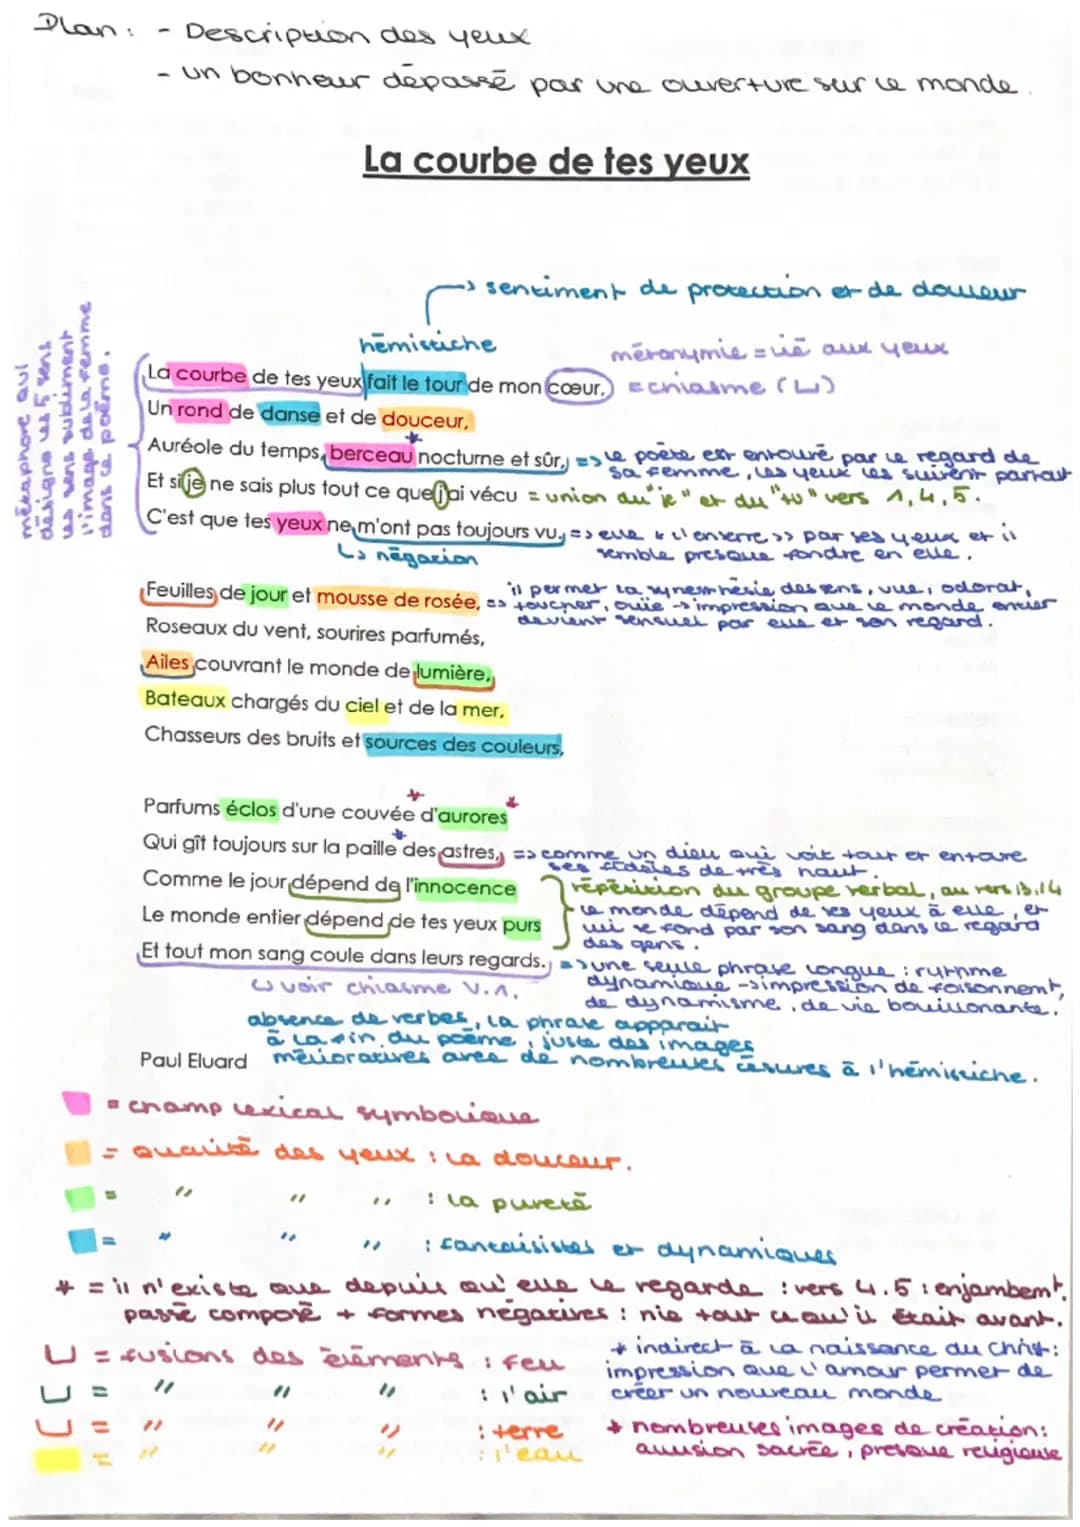 Plan : - Description des yeux
- un bonheur dépassé par une ouverture sur le monde.
La courbe de tes yeux
→ sentiment de protection et de douceur
hémistiche
métonymie = lié aux yeux
La courbe de tes yeux fait le tour de mon cœur, = chiasme (L)
Un rond de danse et de douceur,
Auréole du temps, berceau nocturne et sûr, => le poète est entouré par le regard de
sa femme, les yeux les suivent partout
Et si je ne sais plus tout ce que j'ai vécu = union du "je" et du "tu" vers 1, 4, 5.
C'est que tes yeux ne m'ont pas toujours vu. => elle « l'enserre » par ses yeux et il
semble presque fondre en elle.
↳ négation
métaphore qui
désigne les 5 sens
les sens subliment
l'image de la femme
dans ce poème.
Feuilles de jour et mousse de rosée, => il permet la synesthésie des sens, vue, odorat,
toucher, ouïe → impression que le monde entier
devient sensuel par elle et son regard.
Roseaux du vent, sourires parfumés,
Ailes couvrant le monde de lumière,
Bateaux chargés du ciel et de la mer,
Chasseurs des bruits et sources des couleurs,
Parfums éclos d'une couvée d'aurores
Qui gît toujours sur la paille des astres, => comme un dieu qui voit tout et entoure
ses fidèles de très haut.
Comme le jour dépend de l'innocence
répétition du groupe verbal, au vers 13, 14
Le monde entier dépend de tes yeux purs
le monde dépend de ses yeux à elle, et
lui se fond par son sang dans le regard
des gens.
Et tout mon sang coule dans leurs regards. => une seule phrase longue : rythme
dynamique → impression de foisonnemt,
de dynamisme, de vie bouillonante.
↳ voir chiasme v.1.
absence de verbes, la phrase apparait
à la fin du poème, juste des images
mélioratives avec de nombreuses césures à l'hémistiche.
Paul Eluard
= champ lexical symbolique
= qualité des yeux : la douceur.
= " " " : la pureté
= " " " : fantaisistes et dynamiques
* = il n'existe que depuis qu'elle le regarde : vers 4.5 : enjambemt.
passé composé + formes négatives : nie tout ce qu'il était avant.
= fusions des éléments : feu
= " " " : l'air
= " " " : terre
= " " " : l'eau
* indirect à la naissance du Christ :
impression que l'amour permet de
créer un nouveau monde
* nombreuses images de création :
allusion sacrée, presque religieuse